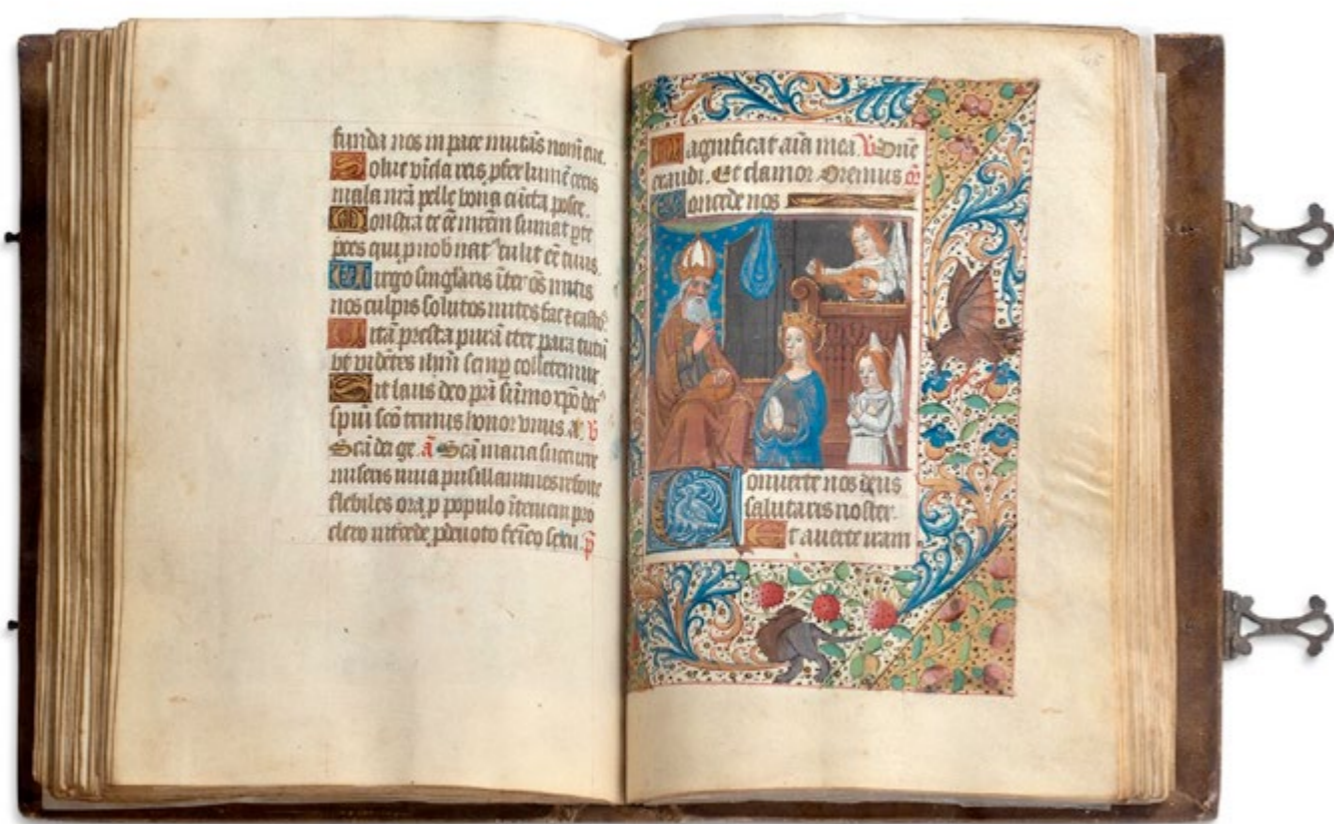 funda nos in pace mutãs nom̃ eue.
Solue vĩcla reis pfer lumẽ cecis
mala nr̃a pelle bona cũcta posce.
Monstra te eẽ mr̃em sumat p te
p̃ces qui p nob nat' tulit eẽ tuus.
Uirgo singlaris ĩter os mitis
nos culpis solutos mites fac & castos
Uitã presta purã iter para tutũ
vt vidẽtes ihm̃ semp colletemur
Sit laus deo pr̃i sũmo xp̃o dec'
spũi scõ trinus honor vnus. a. V
Sc̃a dei ge. ã Sc̃a maria succurre
miseris iuua pusillanimes refoue
flebiles ora p populo ĩterueni pro
clero ĩtercede p deuoto fẽĩeo sexu. p̃
Magnificat aĩa mea. V Dñe
exaudi. Et clamor Oremus or̃
Concede nos
Conuerte nos deus
salutaris noster.
Et auerte iram